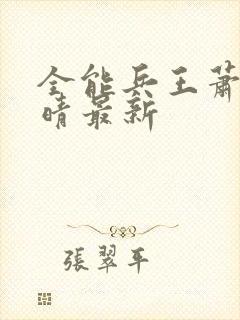 全能兵王蕭
晴最新
張翠平